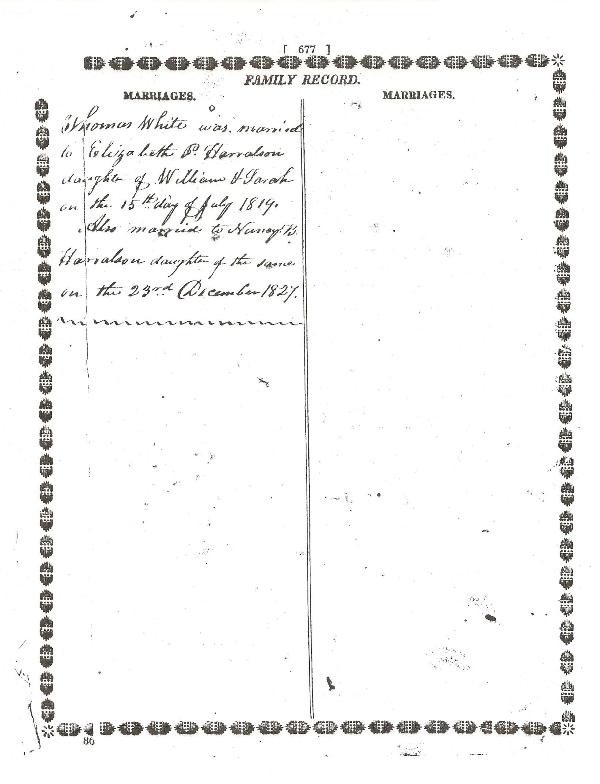 [ 677 ]
FAMILY RECORD.
MARRIAGES.
MARRIAGES.
Thomas White was married
to Elizabeth P. Harralson
daughter of William & Sarah
on the 15th day of July 1819.
Also married to Nancy B.
Harralson daughter of the same
on the 23rd December 1827.
86